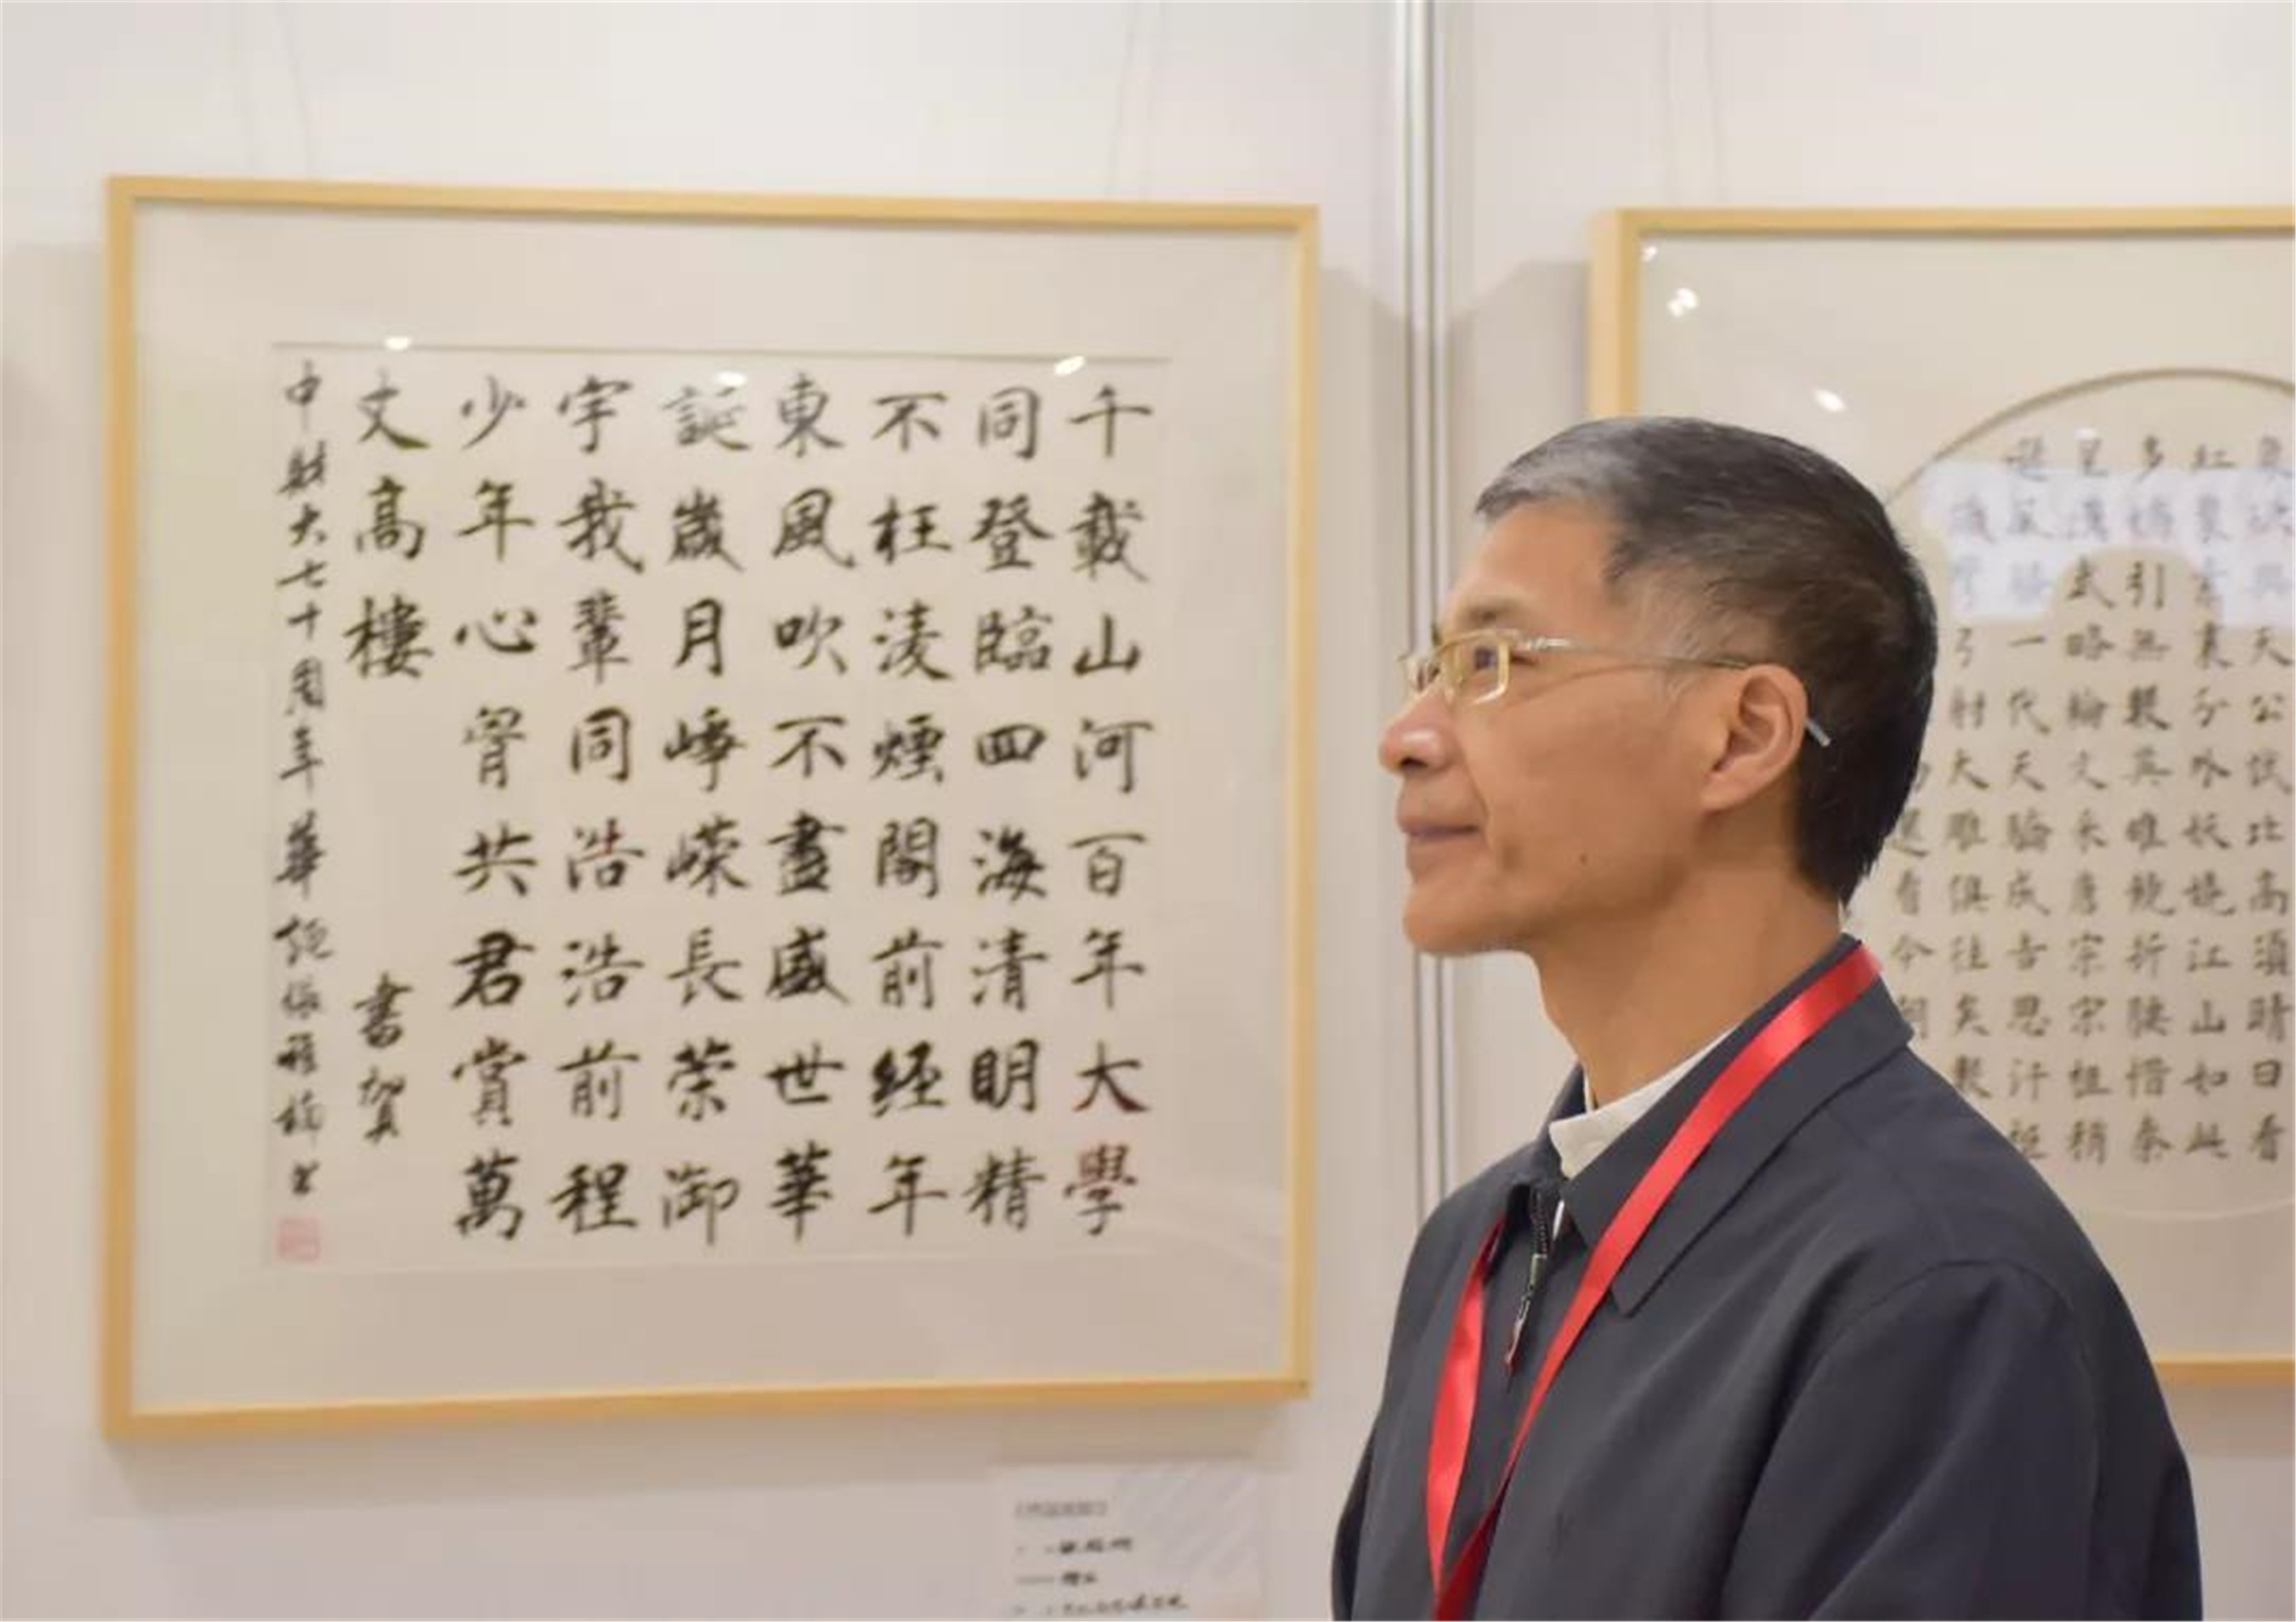 千載山河百年大學
同登臨四海清明精
不枉淩煙閣前經年
東風吹不盡盛世華
誕歲月崢嶸長榮御
宇我輩同浩浩前程
少年心胥共君賞萬
丈高樓
書賀
中財大七十周年華誕
象欲與天公試比高須晴日看
紅裝素裹分外妖嬈江山如此
多嬌引無數英雄競折腰惜秦
皇漢武略輸文采唐宗宋祖稍
遜風騷一代天驕成吉思汗
識彎弓射大雕俱往矣數
還看今朝